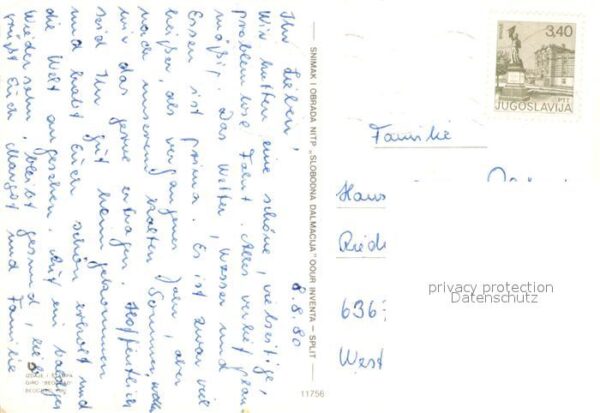 8.8.80
Ihr Lieben,
Wir hatten eine schöne, vielseitige,
problemlose Fahrt. Alles verlief plan-
mäßig. Das Wetter, Wasser und
Essen ist prima. Es ist zwar viel
heißer, als vergangenes Jahr, aber
nach unserem kalten Sommer, wollen
wir das gerne ertragen. Hoffentlich
seid Ihr gut heimgekommen
und habt Euch schön erholt und
die Welt angesehen. Auf ein baldiges
Wiedersehn, bleibt gesund,
grüßt Euch Margot und Familie
SNIMAK I OBRADA NITP „SLOBODNA DALMACIJA" OOUR INVENTA — SPLIT
11756
3,40
PTT
JUGOSLAVIJA
Familie
Hans
Ried
636
West
privacy protection
Datenschutz